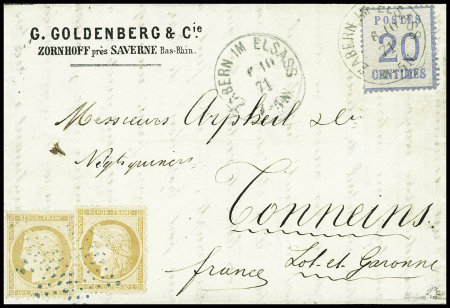 G. GOLDENBERG & Cie
ZORNHOFF près SAVERNE Bas-Rhin.
ZABERN IM ELSASS
10
71
POSTES
20
CENTIMES
ZABERN IM
Messieurs Arpheil &
Négts quiniers
Tonneins
Lot et Garonne
france
REPUB. FRANC.
REPUB. FRANC.